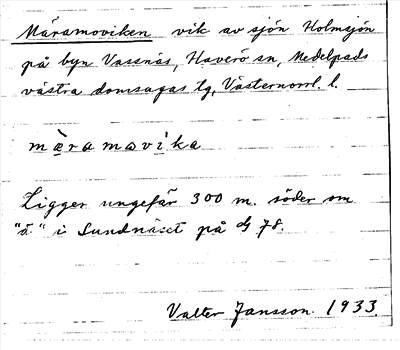 Måramoviken vik av sjön Holmsjön
på byn Vassnäs, Haverö sn, Medelpads
västra domsagas tg, Västernorrl. l.
mæ̀ramavi`ka
Ligger ungefär 300 m. söder om
"ä" i Sundnäset på 78.
Valter Jansson 1933.